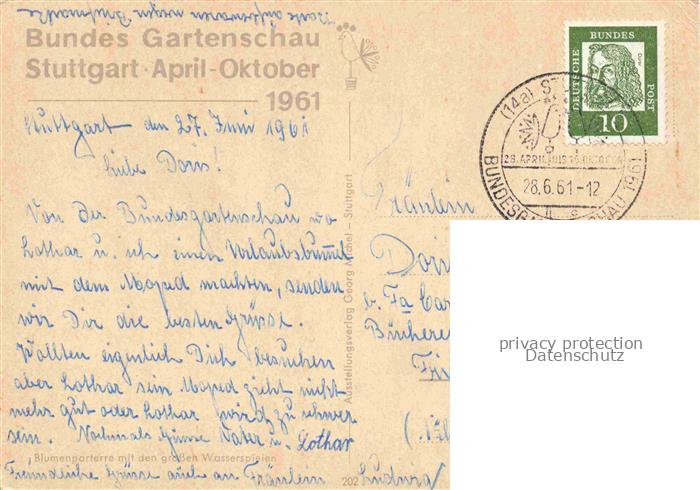 Karte aufbewaren wegen Briefmarke
Bundes Gartenschau
Stuttgart · April-Oktober
1961
Stuttgart den 27. Juni 1961
Liebe Doris!
Von der Bundesgartenschau wo
Lothar u. ich einen Urlaubsbummel
mit dem Moped machten, senden
wir Dir die besten Grüsse.
Wollten eigentlich Dich besuchen
aber Lothar sein Moped zieht nicht
mehr gut oder Lothar wird zu schwer
sein. Nochmals Grüsse Vater u. Lothar
Blumenparterre mit den großen Wasserspielen
202
Freundliche Grüsse auch an Fräulein Ludwig
Ausstellungsverlag Georg Michel - Stuttgart
DEUTSCHE BUNDES POST
Dürer
10
(14a) ST
28. APRIL BIS 15. OKTOBER
28.6.61-12
BUNDESGA SCHAU 1961
Fräulein
Dori
b. Fa Car
Bücherе
privacy protection
Datenschutz